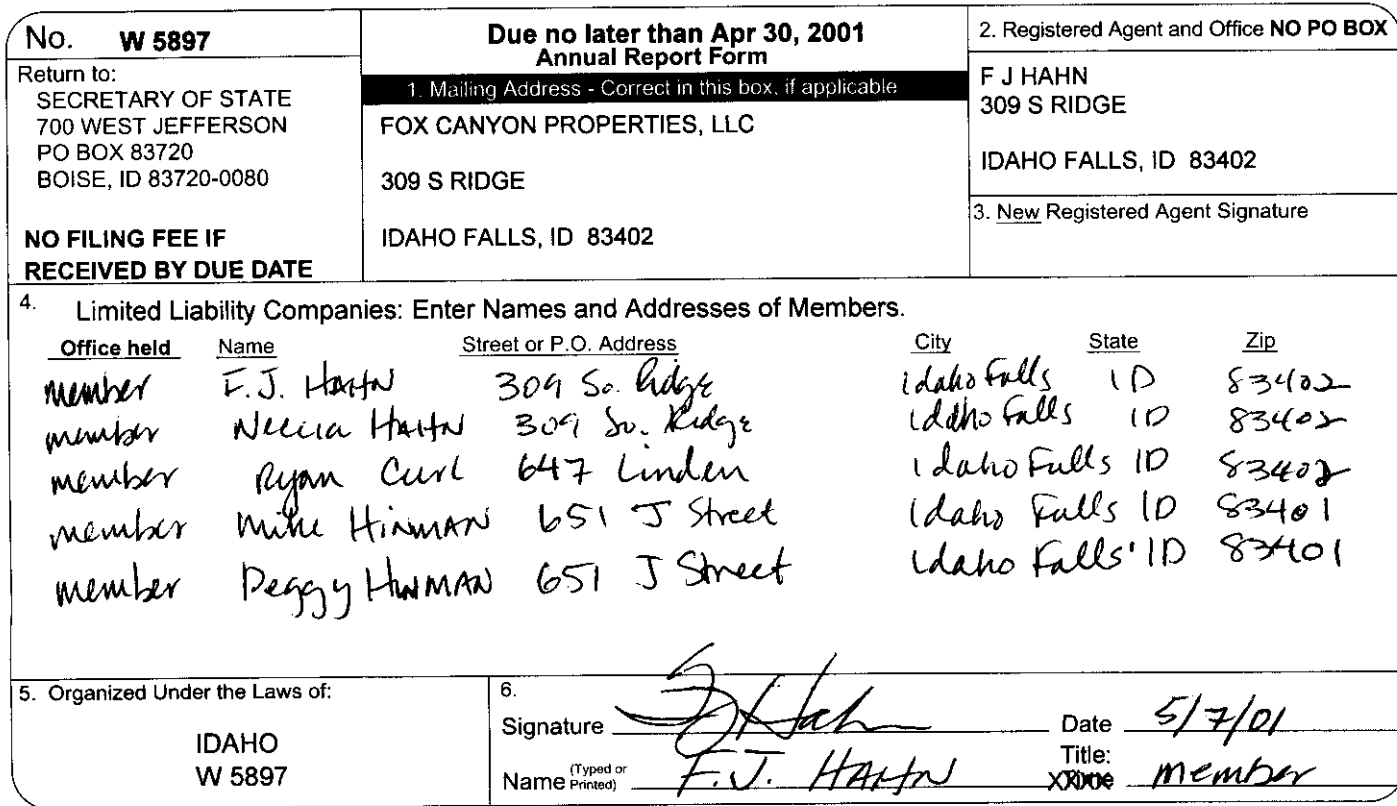 No. W 5897
Return to:
SECRETARY OF STATE
700 WEST JEFFERSON
PO BOX 83720
BOISE, ID 83720-0080
NO FILING FEE IF
RECEIVED BY DUE DATE
Due no later than Apr 30, 2001
Annual Report Form
1. Mailing Address - Correct in this box, if applicable
FOX CANYON PROPERTIES, LLC
309 S RIDGE
IDAHO FALLS, ID 83402
2. Registered Agent and Office NO PO BOX
F J HAHN
309 S RIDGE
IDAHO FALLS, ID 83402
3. New Registered Agent Signature
4. Limited Liability Companies: Enter Names and Addresses of Members.
Office held Name Street or P.O. Address City State Zip
member F.J. HAHN 309 So. Ridge Idaho Falls ID 83402
member Neccia HAHN 309 So. Ridge Idaho Falls ID 83402
member Ryan Curl 647 Linden Idaho Falls ID 83402
member Mike HINMAN 651 J Street Idaho Falls ID 83401
member Peggy HINMAN 651 J Street Idaho Falls ID 83401
5. Organized Under the Laws of:
IDAHO
W 5897
6.
Signature FJ Hahn Date 5/7/01
Name (Typed or Printed) F.J. HAHN Title: member